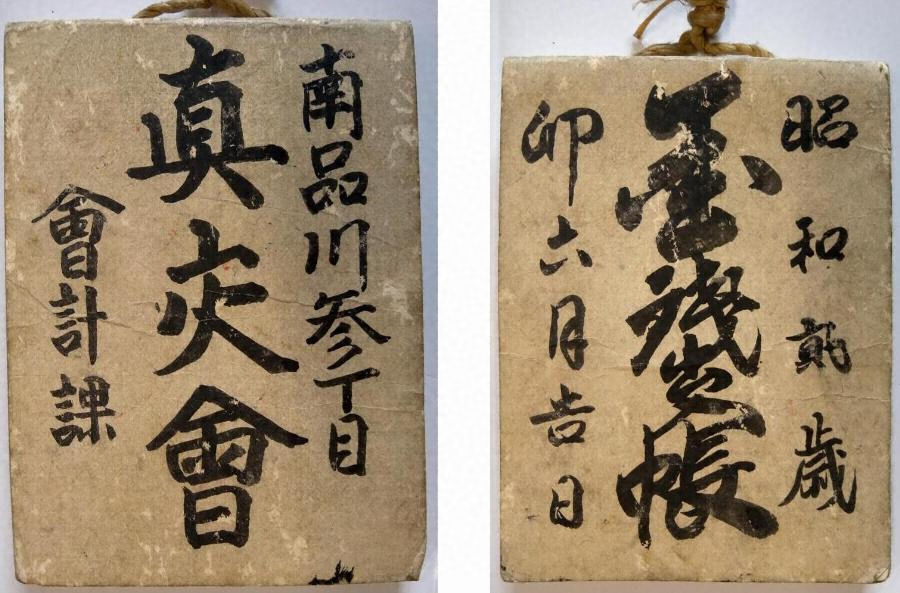 南品川参丁目
真交會
會計課
昭和貮歳
金銭出入帳
卯六月吉日